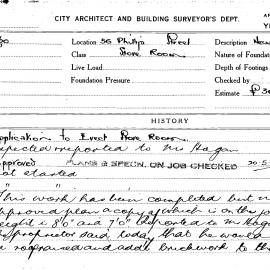 CITY ARCHITECT AND BUILDING SURVEYOR'S DEPT.
Location 56 Phillip Street
Description New
Class Store Room
Nature of Foundat
Live Load
Depth of Footings
Foundation Pressure
Checked by
Estimate £
HISTORY
pplication to Erect Store Room
spected reported to Mr Hogan
pproved PLANS & SPECN. ON JOB CHECKED 20.5
ot started
" "
This work has been completed but n
pproved plan a copy of which is on the jo
eight is 8'0" and 7'0" reported to Mr Hoga
proprietor said today that he would
raised and add brickwork to th